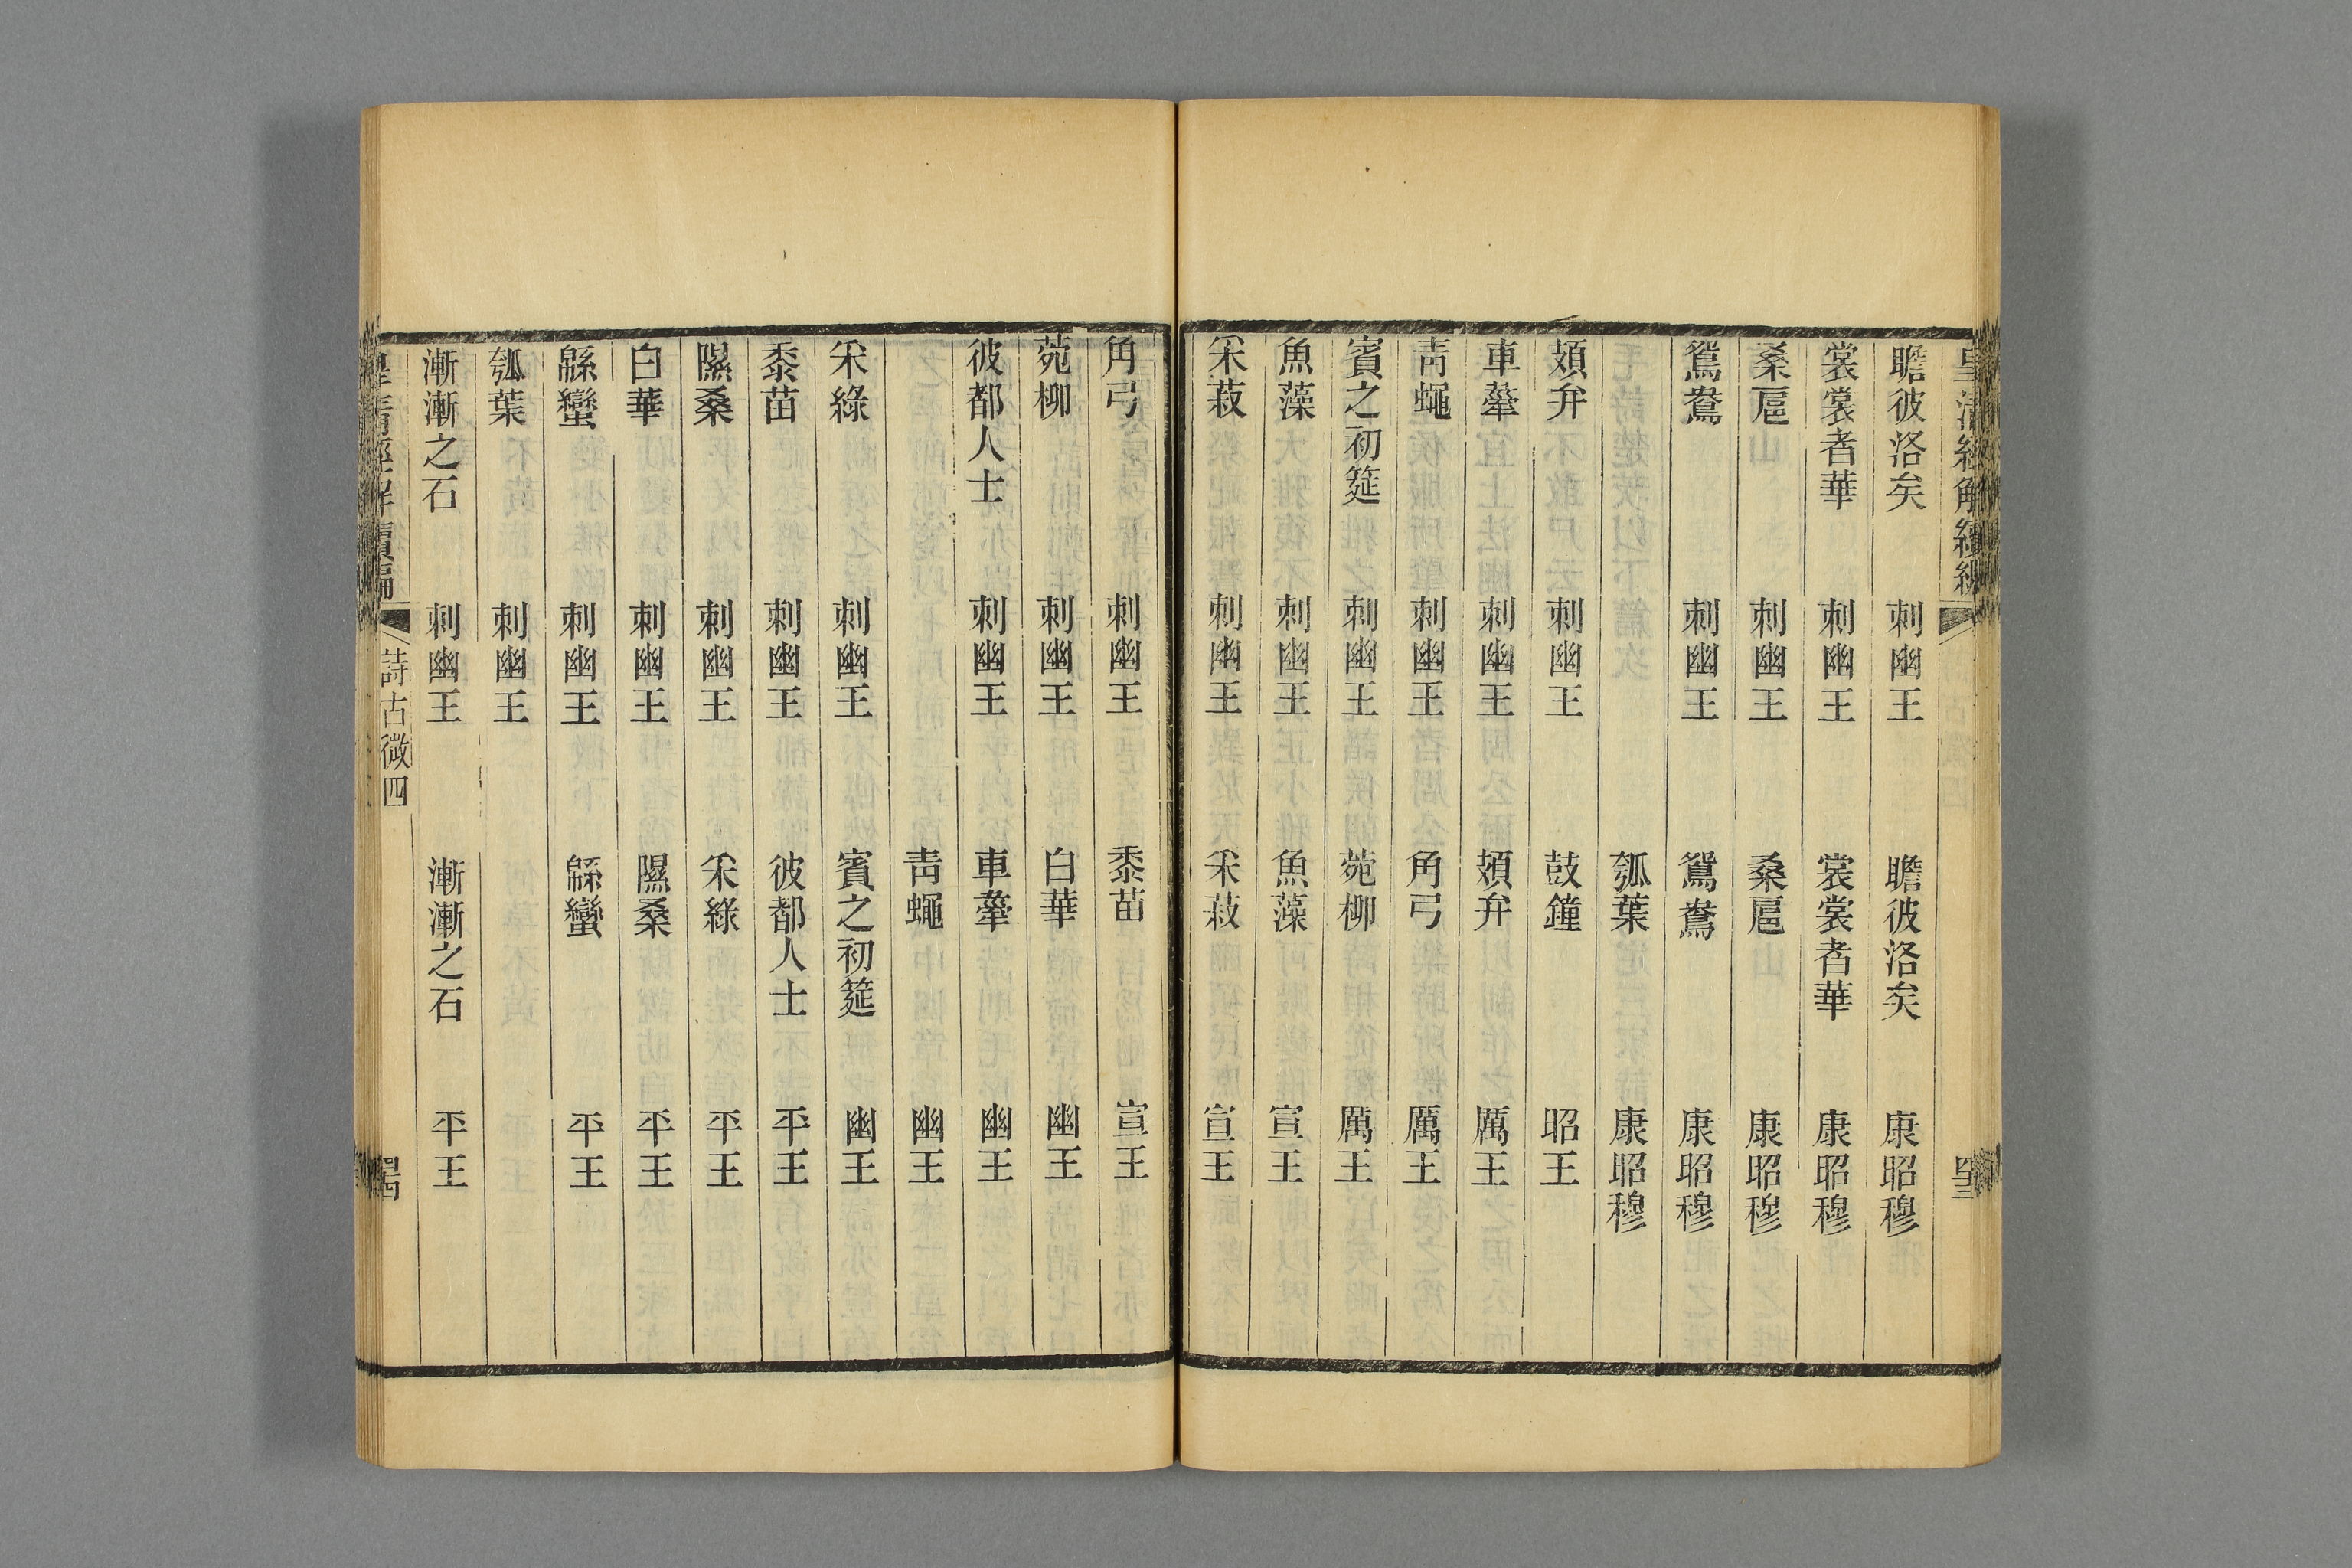 皇清經解續編
瞻彼洛矣　刺幽王　瞻彼洛矣　康昭穆
裳裳者華　刺幽王　裳裳者華　康昭穆
桑扈　刺幽王　桑扈　康昭穆
鴛鴦　刺幽王　鴛鴦　康昭穆
瓠葉　康昭穆
頍弁　刺幽王　鼓鐘　昭王
車舝　刺幽王　頍弁　厲王
靑蠅　刺幽王　角弓　厲王
賓之初筵　刺幽王　菀柳　厲王
魚藻　刺幽王　魚藻　宣王
采菽　刺幽王　采菽　宣王
角弓　刺幽王　黍苗　宣王
菀柳　刺幽王　白華　幽王
彼都人士　刺幽王　車舝　幽王
靑蠅　幽王
采綠　刺幽王　賓之初筵　幽王
黍苗　刺幽王　彼都人士　平王
隰桑　刺幽王　采綠　平王
白華　刺幽王　隰桑　平王
緜蠻　刺幽王　緜蠻　平王
瓠葉　刺幽王
漸漸之石　刺幽王　漸漸之石　平王
皇清經解續編　詩古微四